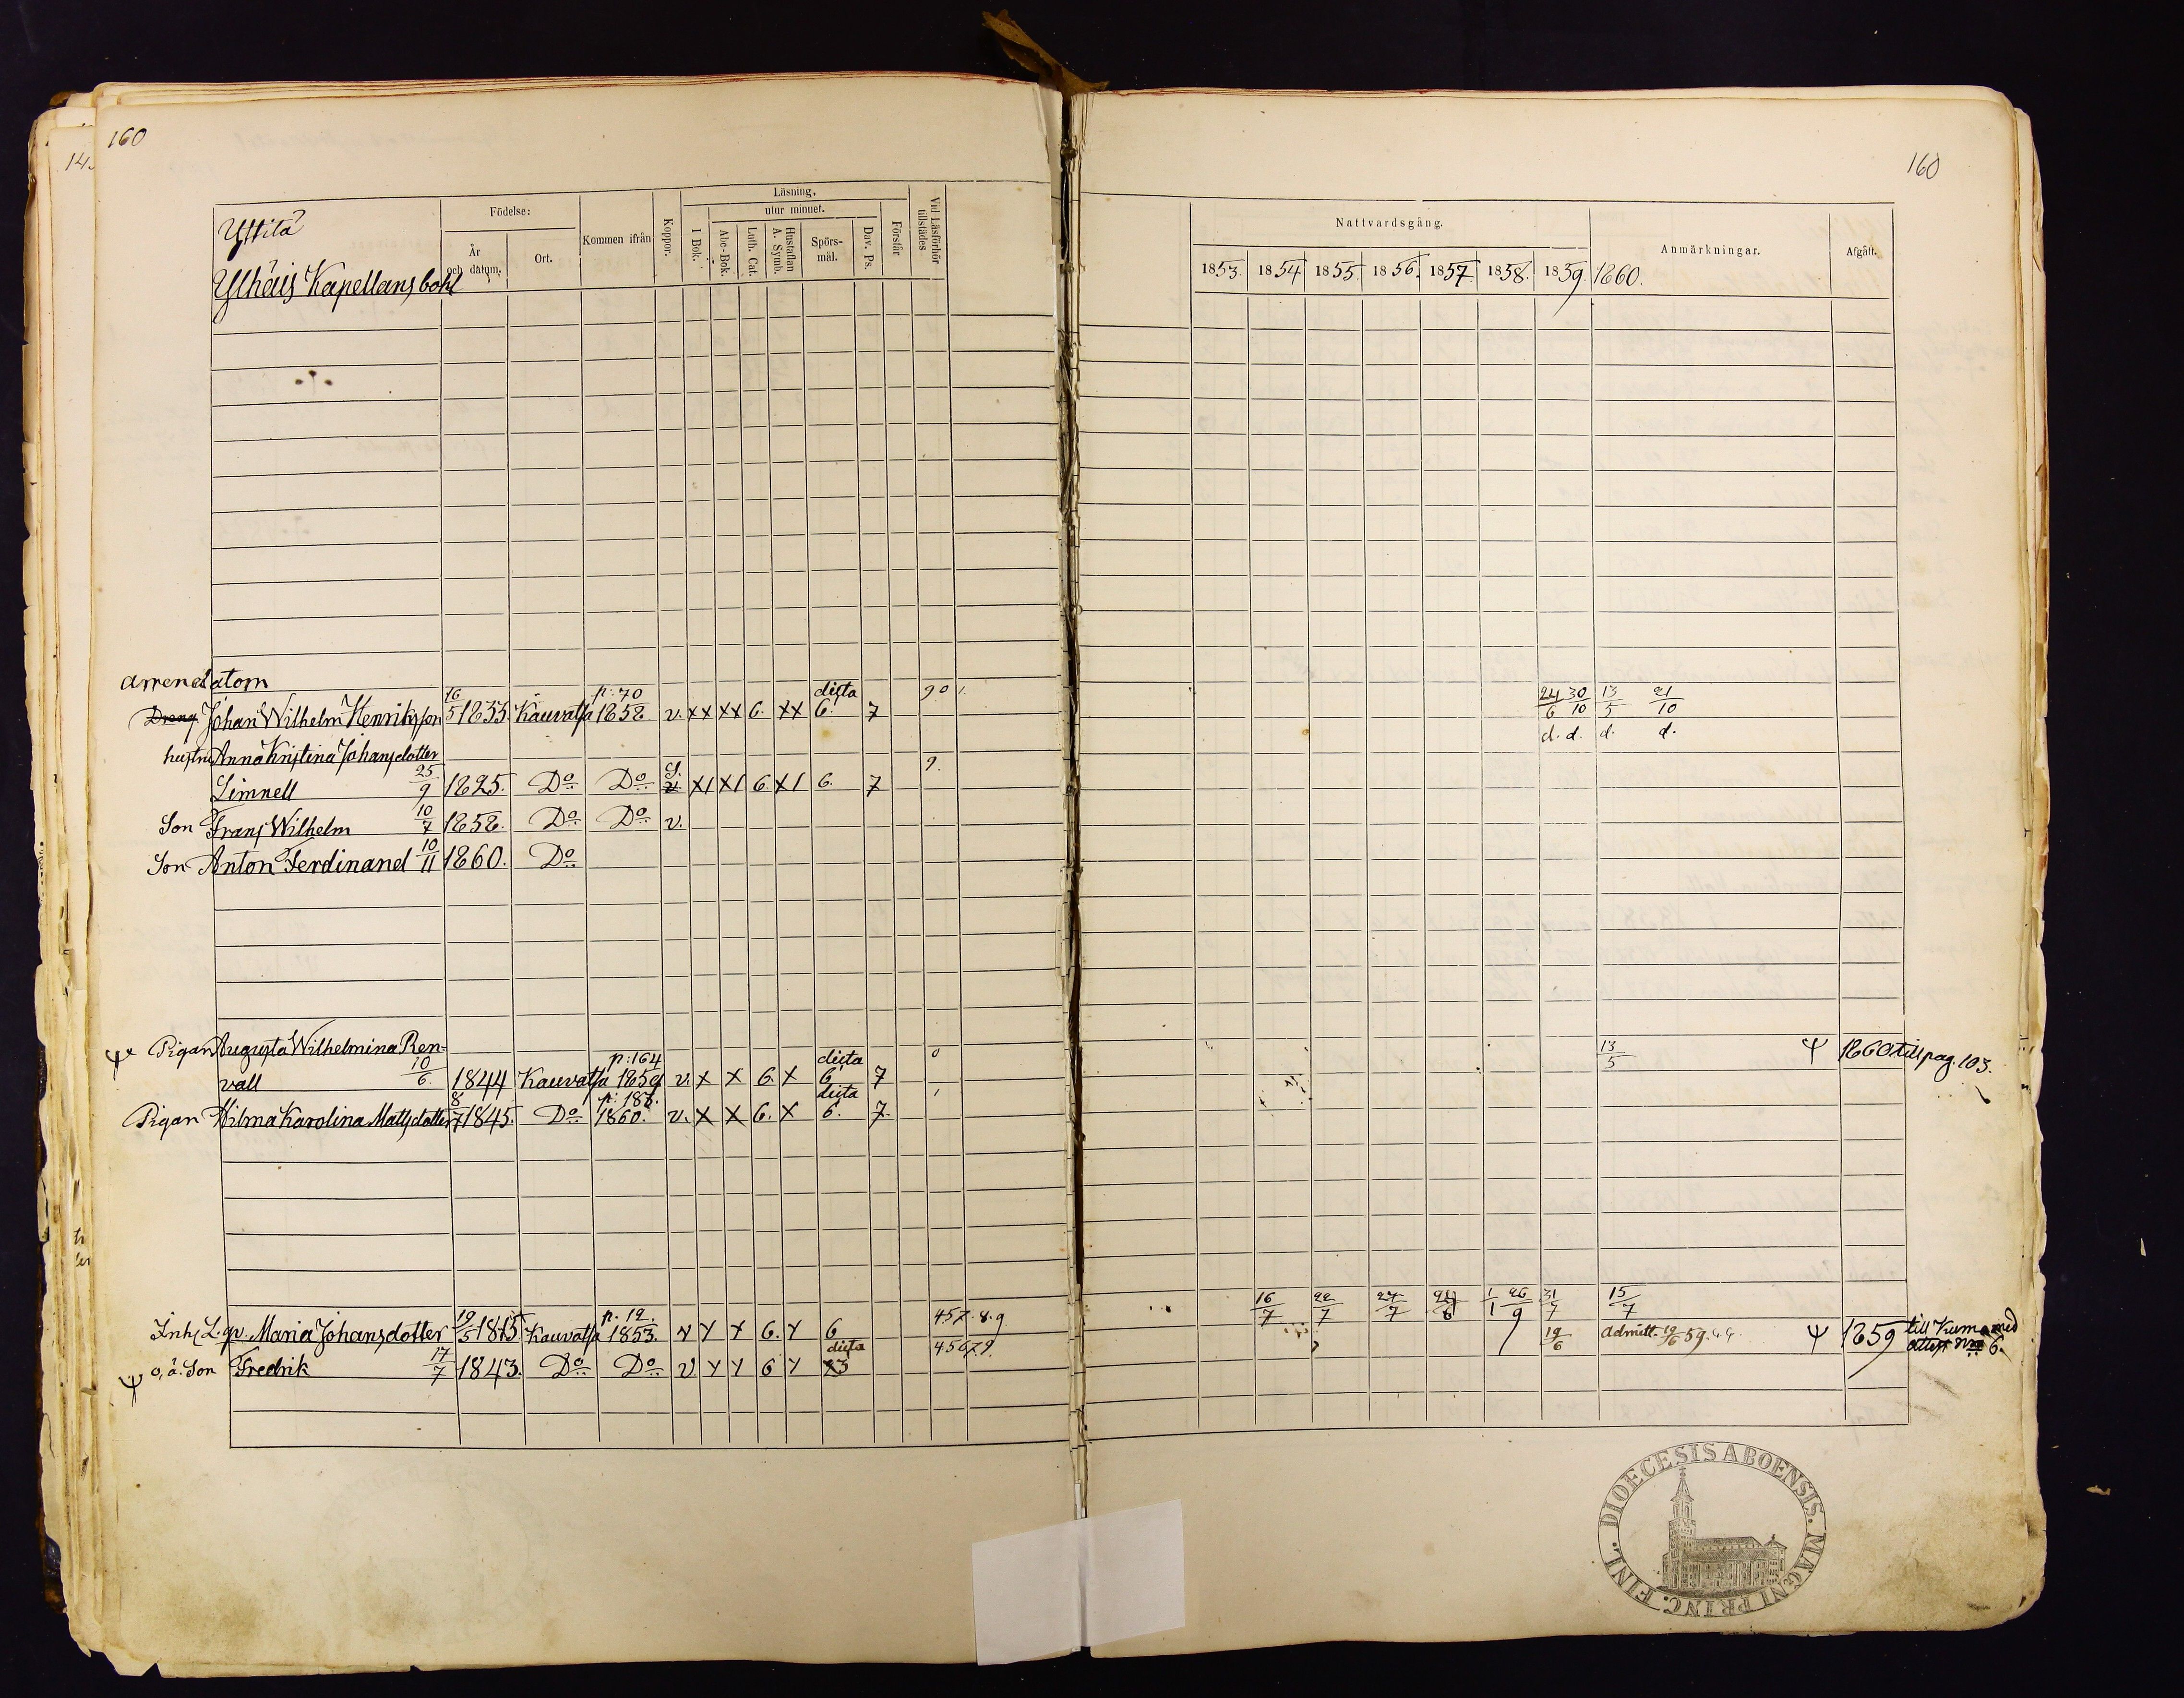 160
160
Yttilä
Ylhäis Kapellansbohl
Födelse:
År och datum.
Ort.
Kommen ifrån
Koppor.
Läsning,
utur minuet.
I Bok.
Abc-Bok.
Luth. Cat.
Hustaflan A. Symb.
Spörs-mål.
Dav. Ps.
Förstår
Vid Läsförhör tillstädes
Nattvardsgång.
1853. 1854 1855 1856. 1857 1858. 1859. 1860.
Anmärkningar.
Afgått.
arrendatorn
Dreng Johan Wilhelm Henriksson 16/5 1833. Kauvatsa p: 70 1858 v. xx xx 6. xx dicta 6. 7 90 24/6 30/10 13/5 21/10
d. d. d. d.
hustru Anna Kristina Johansdotter 9.
Limnell 25/9 1825. Do Do v. x1 x1 6. x1 6. 7
Son Frans Wilhelm 10/7 1858. Do Do v.
Son Anton Ferdinand 10/11 1860. Do
Pigan Augusta Wilhelmina Ren- 0 13/5 1860 till pag. 103.
vall 10/6. 1844 Kauvatsa p: 164 1859 v. x x 6. x dicta 6 7
Pigan Hilma Karolina Matsdotter 8/7 1845. Do 1860. v. x x 6. x dicta 6. 7.
Inh. L. qv. Maria Johansdotter 19/5 1815 Kauvatsa p. 12. 1853. v x x 6. x 6 457.8.9 16/7 22/7 27/7 1/1 26/9 31/7 15/7
o. ä. Son Fredrik 17/7 1843. Do Do v x x 6 x dicta 4567.8. 19/6 admitt. 19/6 59. 1859 till Kumo med attest No 6.
DIOECESIS ABOENSIS. MAGNI PRINC. FINL.